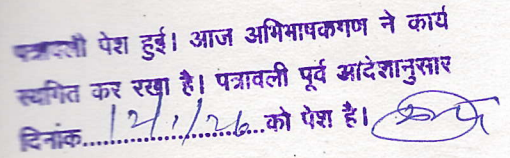 पत्रावली पेश हुई। आज अभिभाषकगण ने कार्य
स्थगित कर रखा है। पत्रावली पूर्व आदेशानुसार
दिनांक......12/1/26......को पेश है।